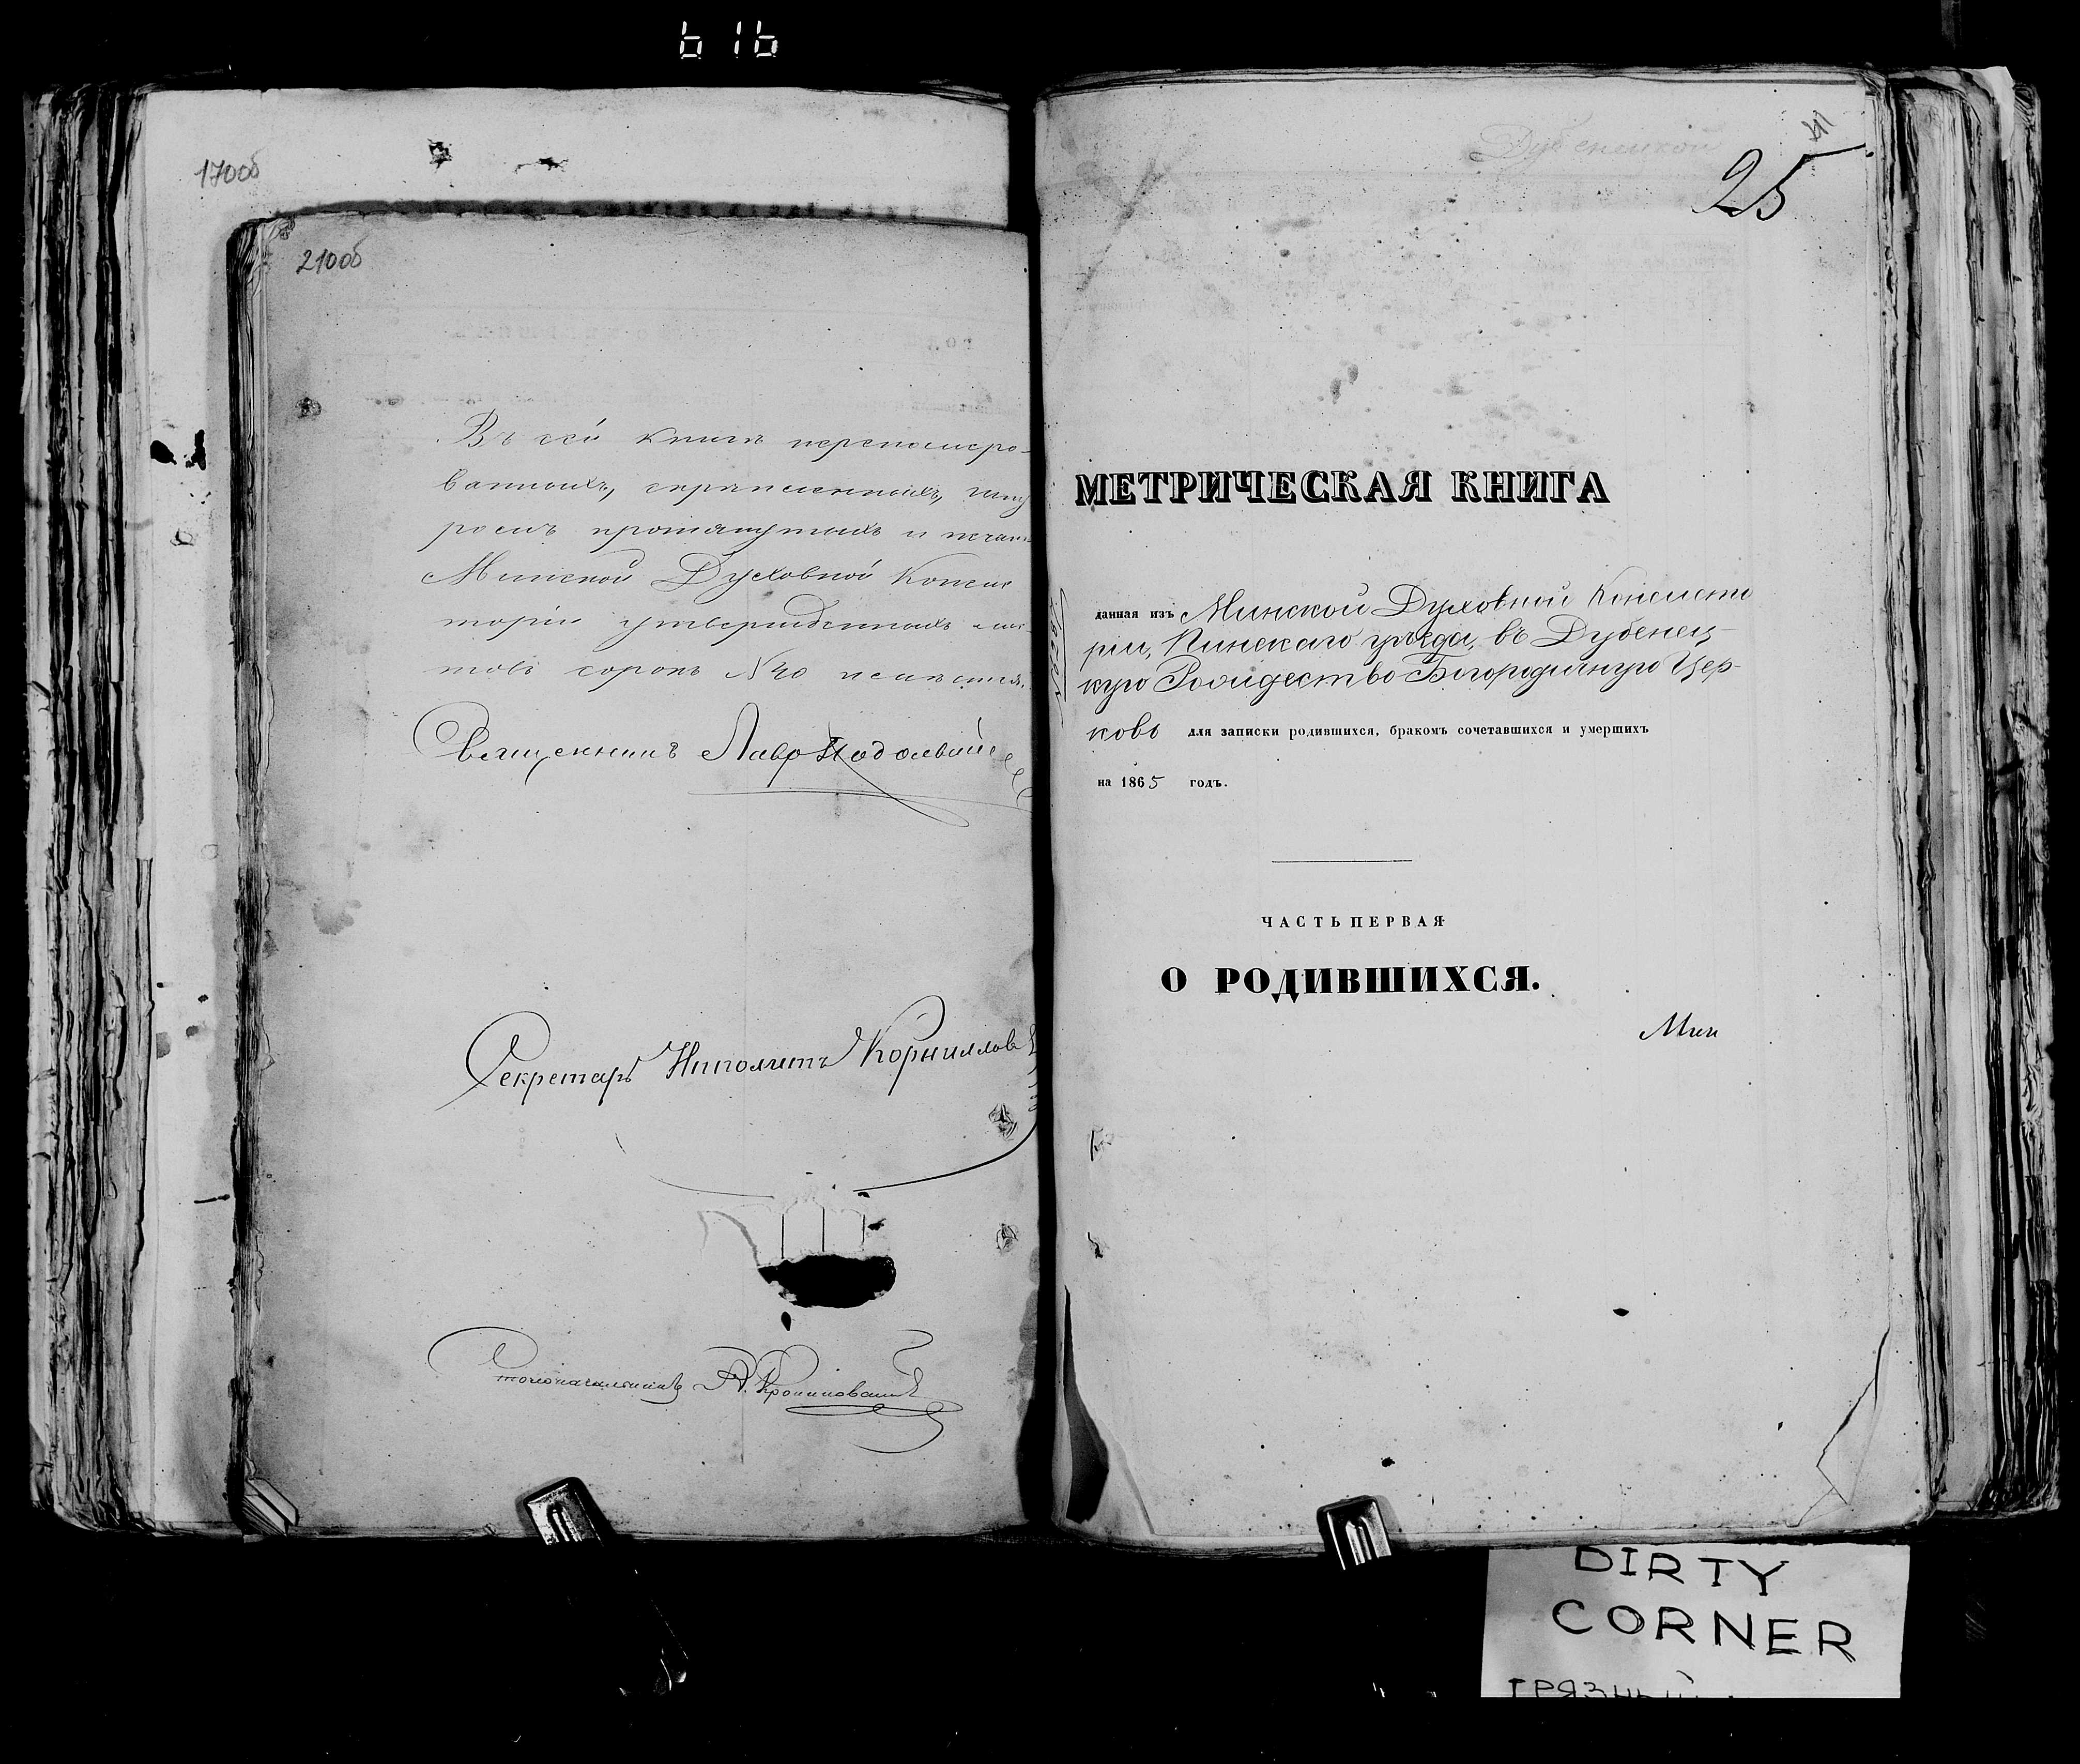 616
170об
210об
Въ сей книгѣ перенумеро-
ванныхъ, скрѣпленныхъ, шну
ромъ протянутыхъ и печат
Минской Духовной Консис
торіи утвержденныхъ лис-
товъ сорокъ №40
Священникъ Лавръ
Секретарь Ипполитъ Корниллов
Столоначальникъ
Дубенецкой
25
МЕТРИЧЕСКАЯ КНИГА
данная изъ Минской Духовной Консисто
ріи, Пинскаго уѣзда, въ Дубенец-
кую Рождество-Богородичную Цер-
ковь для записки родившихся, бракомъ сочетавшихся и умершихъ
на 1865 годъ.
ЧАСТЬ ПЕРВАЯ
О РОДИВШИХСЯ.
Мин
DIRTY
CORNER
ГРЯЗНЫЙ